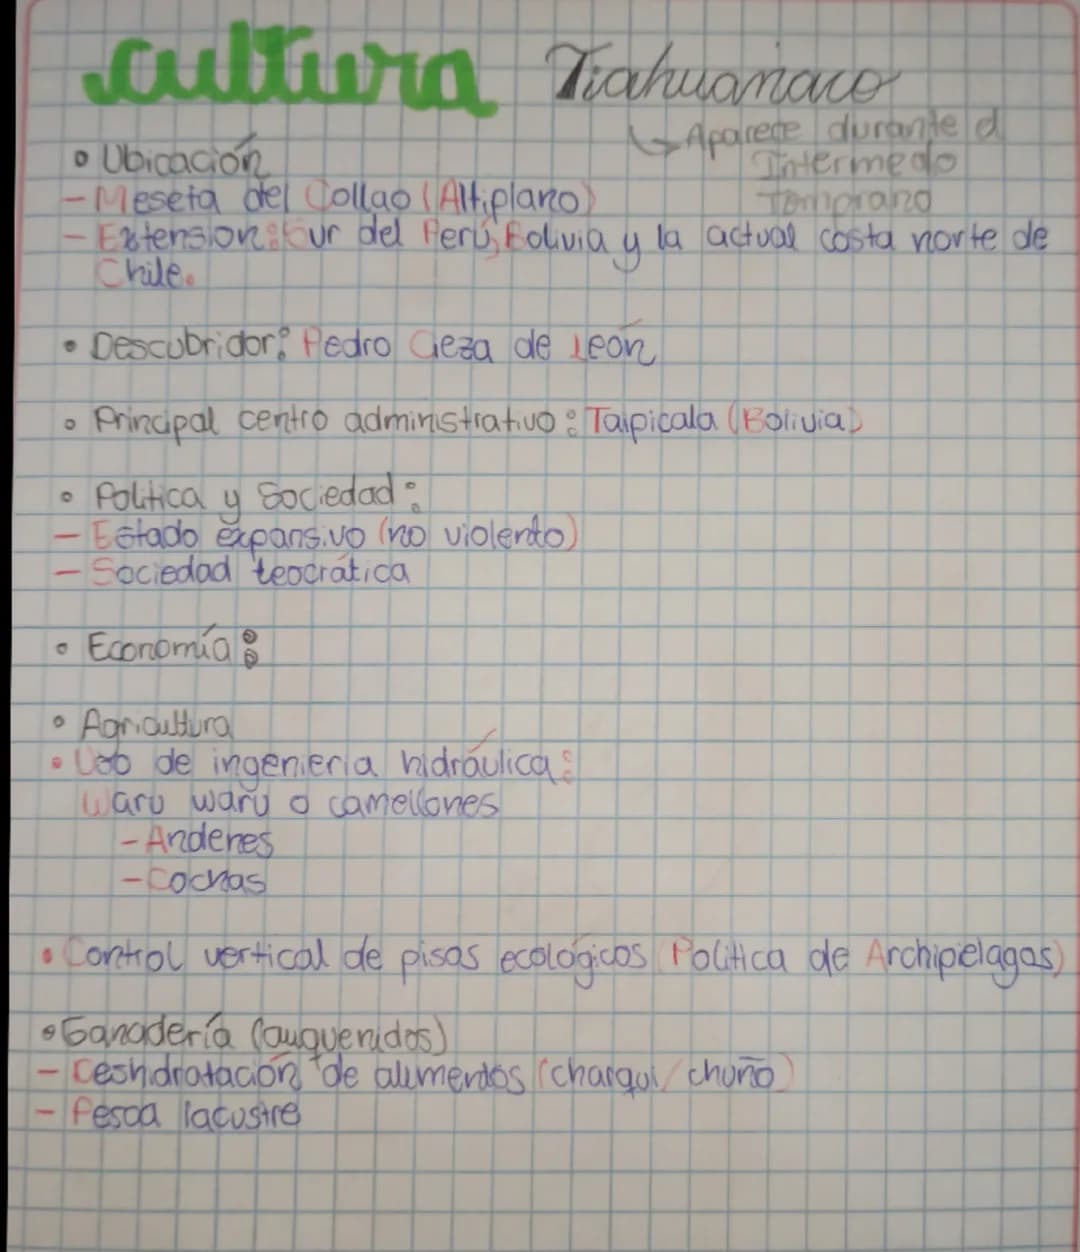 cultura Tiahuanaco
↳ Aparece durante el
Intermedio
Temprano
• Ubicación
- Meseta del Collao (Altiplano)
- Extension: Sur del Perú, Bolivia y la actual costa norte de
Chile.
• Descubridor: Pedro Cieza de León
• Principal centro administrativo: Taipicala (Bolivia)
• Política y Sociedad:
- Estado expansivo (no violento)
- Sociedad teocrática
• Economía:
• Agricultura
• Uso de ingenieria hidráulica:
Waru waru o camellones
- Andenes
- Cochas
• Control vertical de pisos ecológicos (Politica de Archipielagos)
• Ganadería (auquenidos)
- Deshidratación de alimentos (charqui/chuño)
- Pesca lacustre